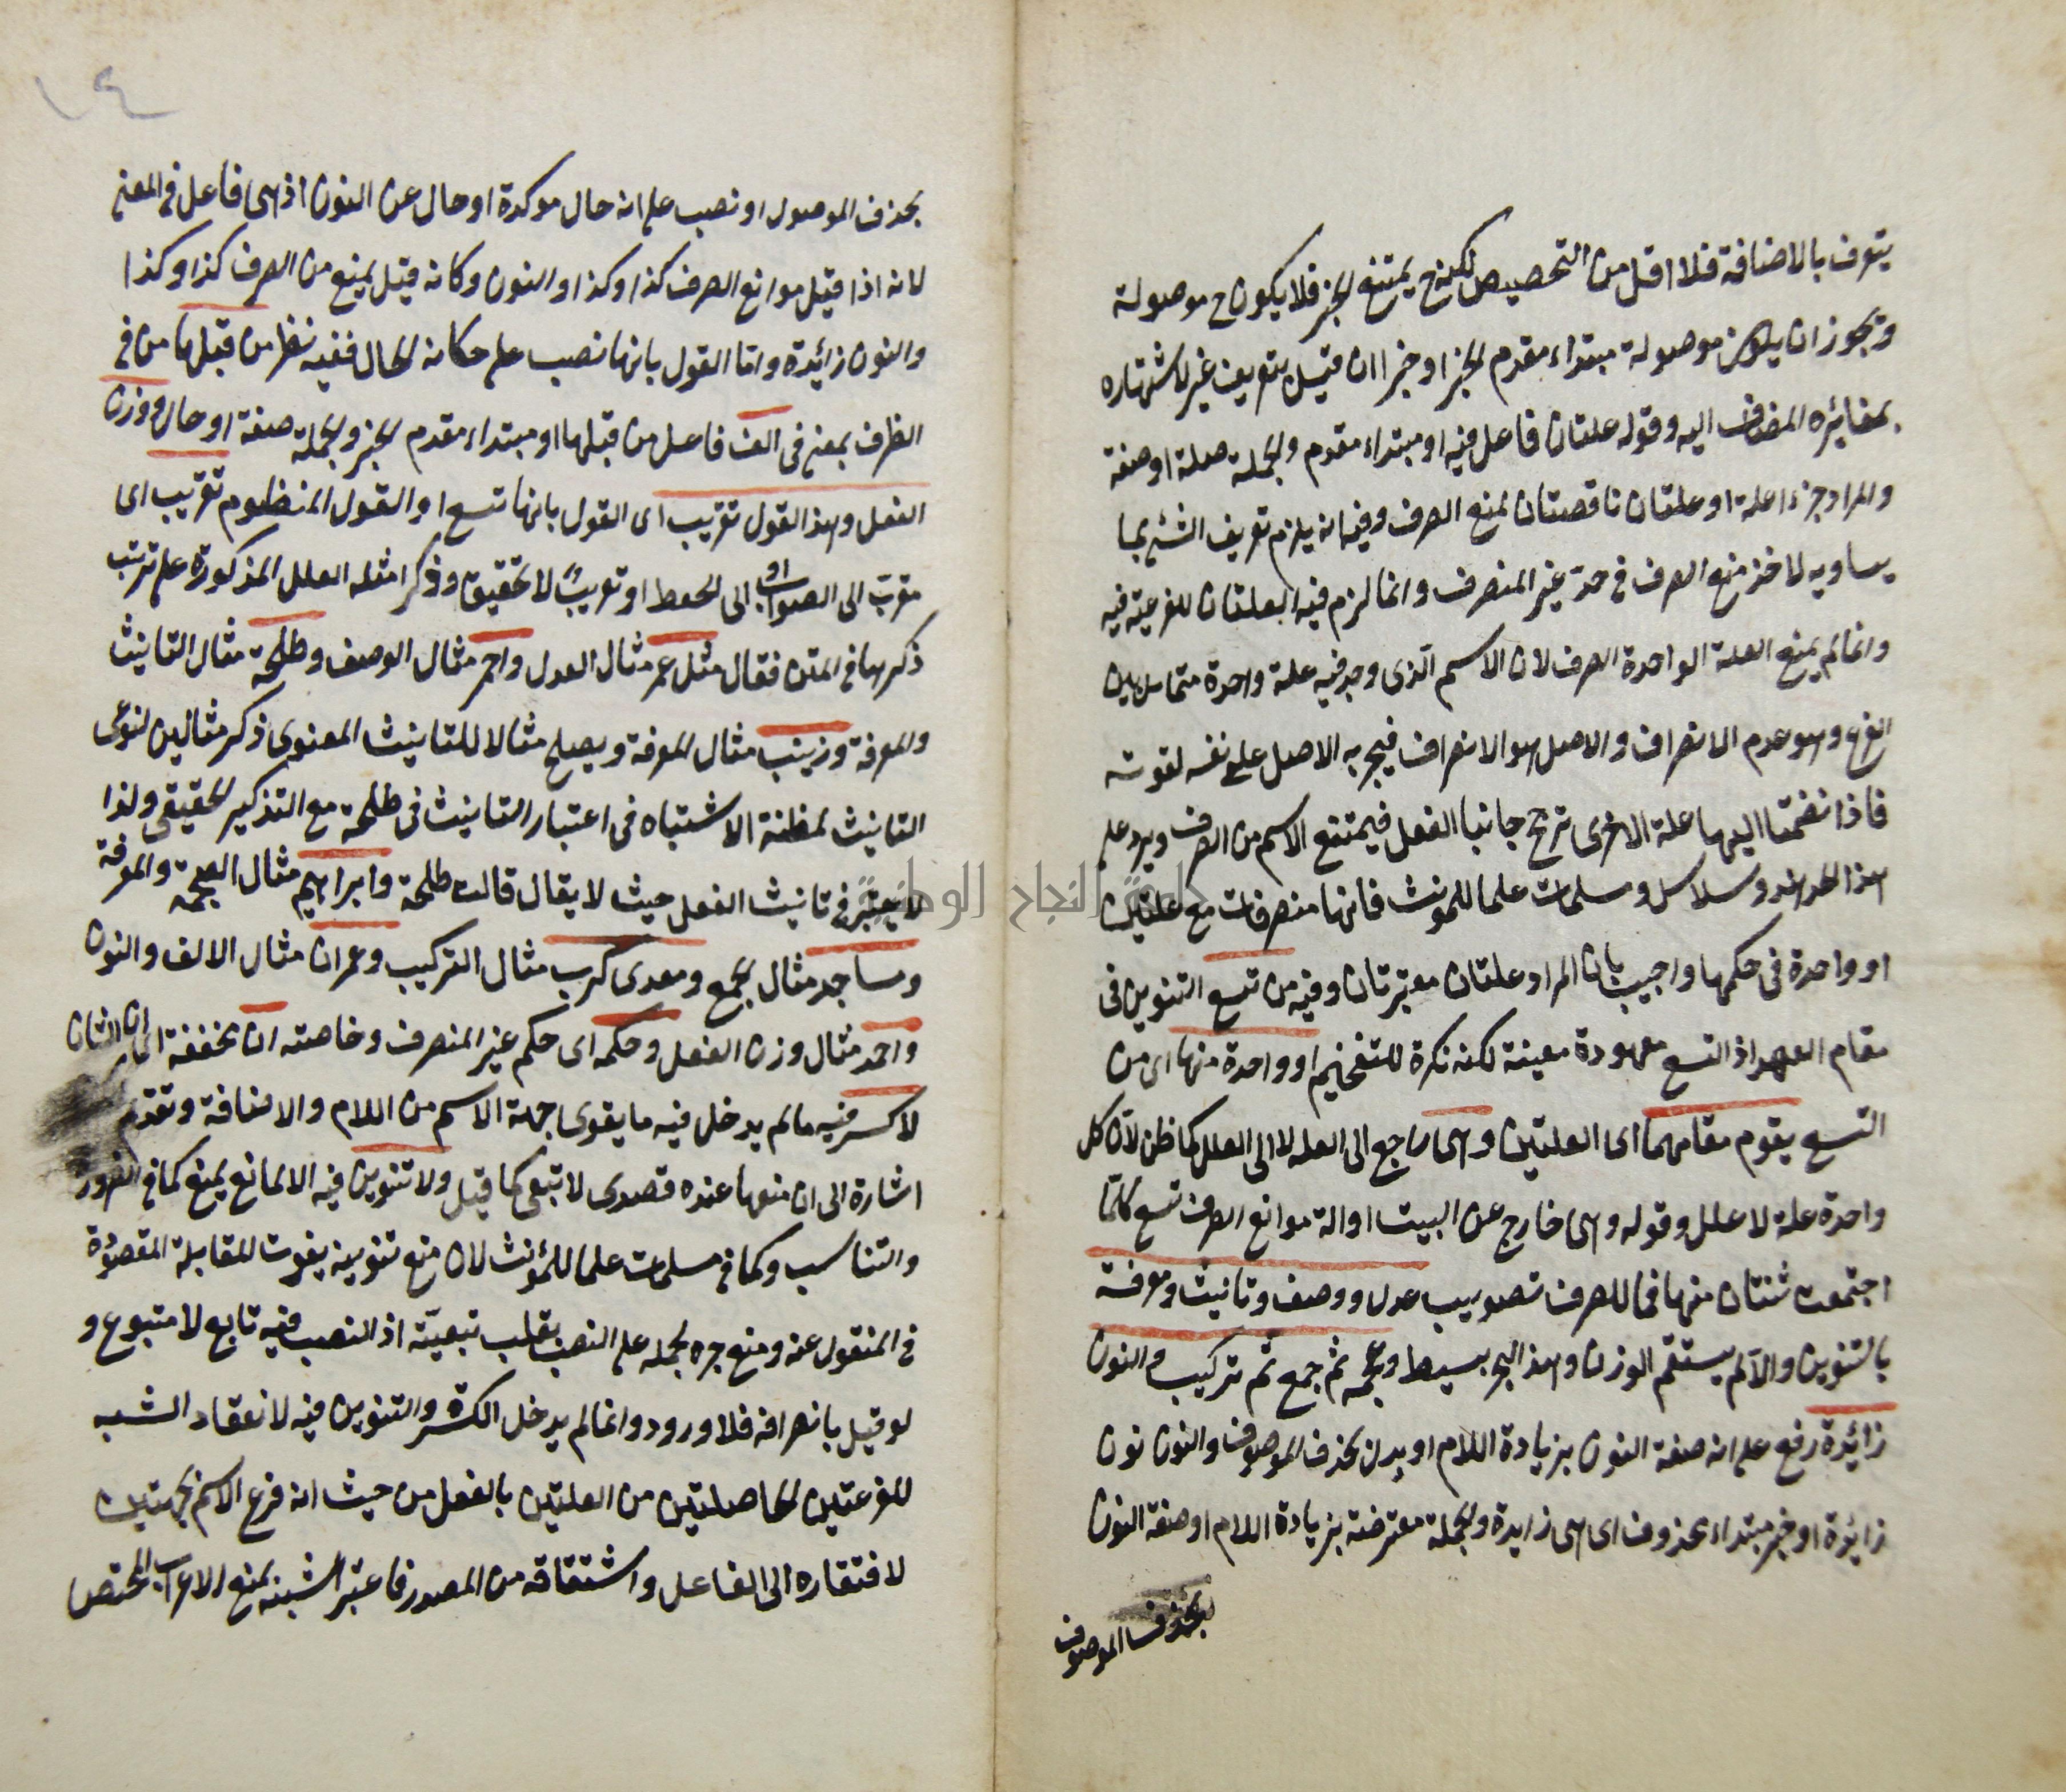 يتعرف بالاضافة فلا اقل من التخصيص لكن ح يمتنع الخبر فلا يكون ح موصولة
ويجوز ان يكون موصولة مبتداء مقدم الخبر او خبرا ان قيل بتعريف غير لاشتهاره
بمغائره المضاف اليه وقوله علتان فاعل فيه او مبتداء مقدم والجملة صلة او صفة
والمراد جزءا علة او علتان ناقصتان لمنع الصرف وفيه انه يلزم تعريف الشئ بما
يساويه لاخذ منع الصرف في حد غير المنصرف وانما لزم فيه العلتان للفرعية فيه
وانما لم يمنع العلة الواحدة الصرف لان الاسم الذى وجد فيه علة واحدة متماس بين
الفرع وهو عدم الانصراف والاصل هو الانصراف فيجر به الاصل على نفسه لقوته
فاذا نضمت اليها علة الاخرى ترجح جانبا الفعل فيمتنع الاسم من الصرف ويرد على
هذا الحد هند وسلاسل ومسلمات علما للمونث فانها منصرفات مع علتين
او واحدة فى حكمها واجيب بان المراد علتان معتبرتان وفيه من تسع التنوين فى
مقام العهد اذ التسع معهودة معينة لكنه نكرة للتفخيم او واحدة منها اى من
التسع يقوم مقامهما اى العلتين وهى راجع الى العلة لا الى العلل كما ظن لان كل
واحدة علة لا علل وقوله وهى خارج عن البيت اواله موانع الصرف تسع كلما
اجتمعت ثنتان منها فما للصرف تصويب عدل ووصف وتانيث ومعرفة
بالتنوين والا لم يستقم الوزن وهذا البحر بسيط وعجمة ثم جمع ثم تركيب والنون
زائدة رفع على انه صفة النون بزيادة اللام او بدل بحذف الموصوف والنون نون
زائدة او خبر مبتداء محذوف اى هى زايدة والجملة معترضة بزيادة اللام او صفة النون
بحذف الموصوف
١٤
بحذف الموصول او نصب على انه حال موكدة او حال عن النون اذ هى فاعل فى المعنى
لانه اذا قيل موانع الصرف كذا وكذا والنون وكانه قيل يمنع من الصرف كذا وكذا
والنون زائدة واما القول بانها نصب على حكاية الحال ففيه نظر من قبلها من فى
الظرف بمعنى فى الف فاعل من قبلها او مبتداء مقدم الخبر والجملة صفة او حال ووزن
الفعل وهذا القول تقريب اى القول بانها تسع او القول المنظوم تقريب اى
مقرب الى الصواب او الى الحفظ او تقريبً لا تحقيق وذكر امثلة العلل المذكورة على ترتيب
ذكرها فى المتن فقال مثل عمر مثال العدل واحمر مثال الوصف وطلحة مثال التانيث
والمعرفة وزينب مثال المعرفة ويصلح مثالا للتانيث المعنوى ذكر مثالين لنوعى
التانيث لمظنة الاشتباه فى اعتبار التانيث فى طلحة مع التذكير الحقيقى ولذا
لا يعتبر فى تانيث الفعل حيث لا يقال قالت طلحة وابراهيم مثال العجمة والمعرفة
ومساجد مثال الجمع ومعدى كرب مثال التركيب وعمران مثال الالف والنون
واحمد مثال وزن الفعل وحكمه اى حكم غير المنصرف وخاصته ان مخففة اى ان الشان
لا كسر فيه ما لم يدخل فيه ما يقوى جهة الاسم من اللام والاضافة وتقدم
اشارة الى ان منعها عنده قصدى لا تبعى كما قيل ولا تنوين فيه الا لمانع يمنع كما فى الضرورة
والتناسب وكما فى مسلمات علما للمؤنث لان منع تنوينه يفوت للمقابلة المقصودة
فى المنقول عنه ومنع جره لحمله على النصب بقلب تبعيته اذ النصب فيه تابع لا متبوع و
لو قيل بانصرافه فلا ورود وانما لم يدخل الكسر والتنوين فيه لانعقاد الشبه
للفرعتين الحاصلتين من العلتين بالفعل من حيث انه فرع الاسم بجهتين
لافتقاره الى الفاعل واشتقاقه من المصدر فاعتبر الشبه بمنع الاعراب المختص